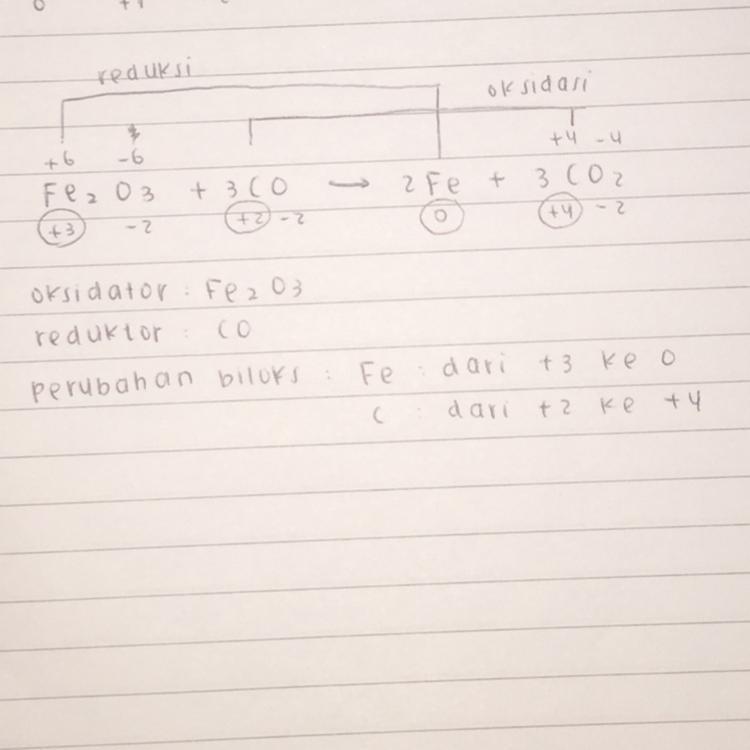 0 +1
reduksi
oksidasi
+6 -6 +4 -4
Fe₂O₃ + 3CO → 2Fe + 3CO₂
+3 -2 +2 -2 0 +4 -2
oksidator : Fe₂O₃
reduktor : CO
perubahan biloks : Fe : dari +3 ke 0
C : dari +2 ke +4